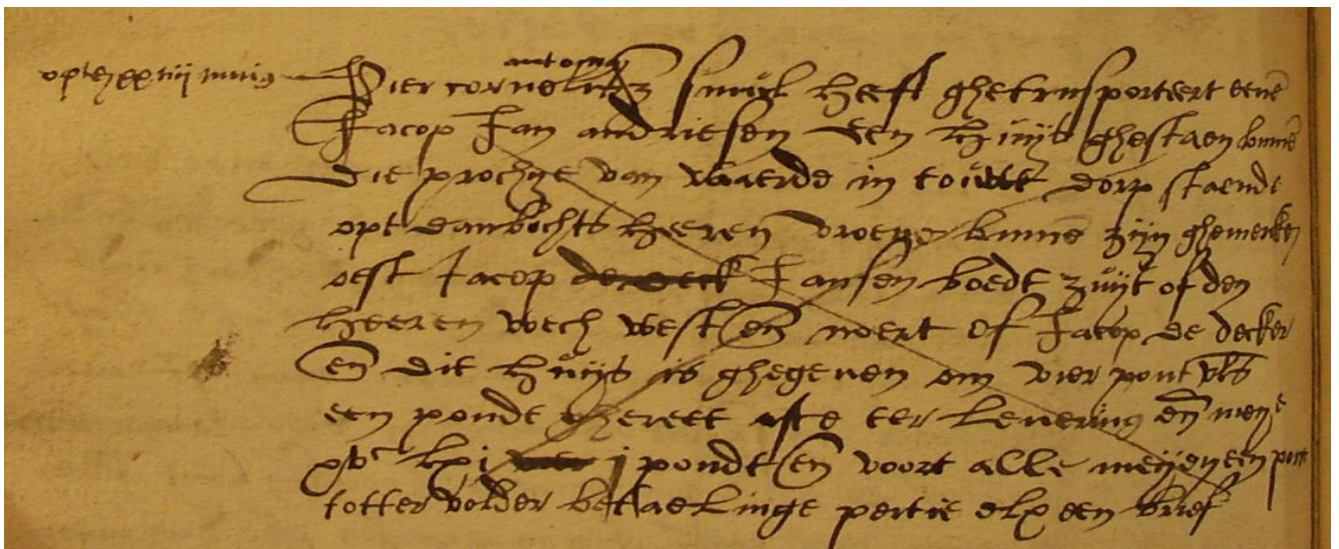 opten xxiiij junius
antonis
Pier cornelisz smijt heeft ghetrnsporteert eenē
Jacop Jan andriesen een huijs ghestaen binnē
die prochije van waerde in touwt dorp staende
opt danbochts heeren vroene binnē zijn ghemerken
oest Jacop de deck Jansen boedt zuijt of den
heeren wech west eñ noert of Jacop de decker
eñ dit huijs is ghegeven om vier pont vls
een pondt ghereet ofte ter levering eñ meije
xvc lxi j pondt eñ voort alle meijen een pont
totter volder betaelinge pertie elx een brief